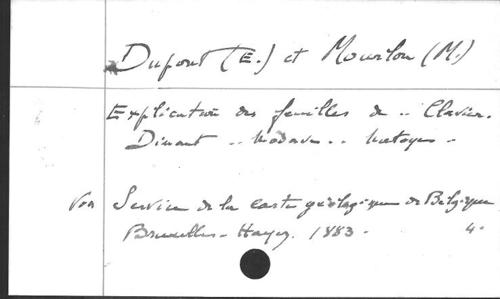 Dupont (E.) et Mourlon (M.)
Explication des feuilles de .. Clavier.
Dinant .. Modave .. Natoye -
Voir Service de la carte géologique de Belgique
Bruxelles - Hayez. 1883 - 4°